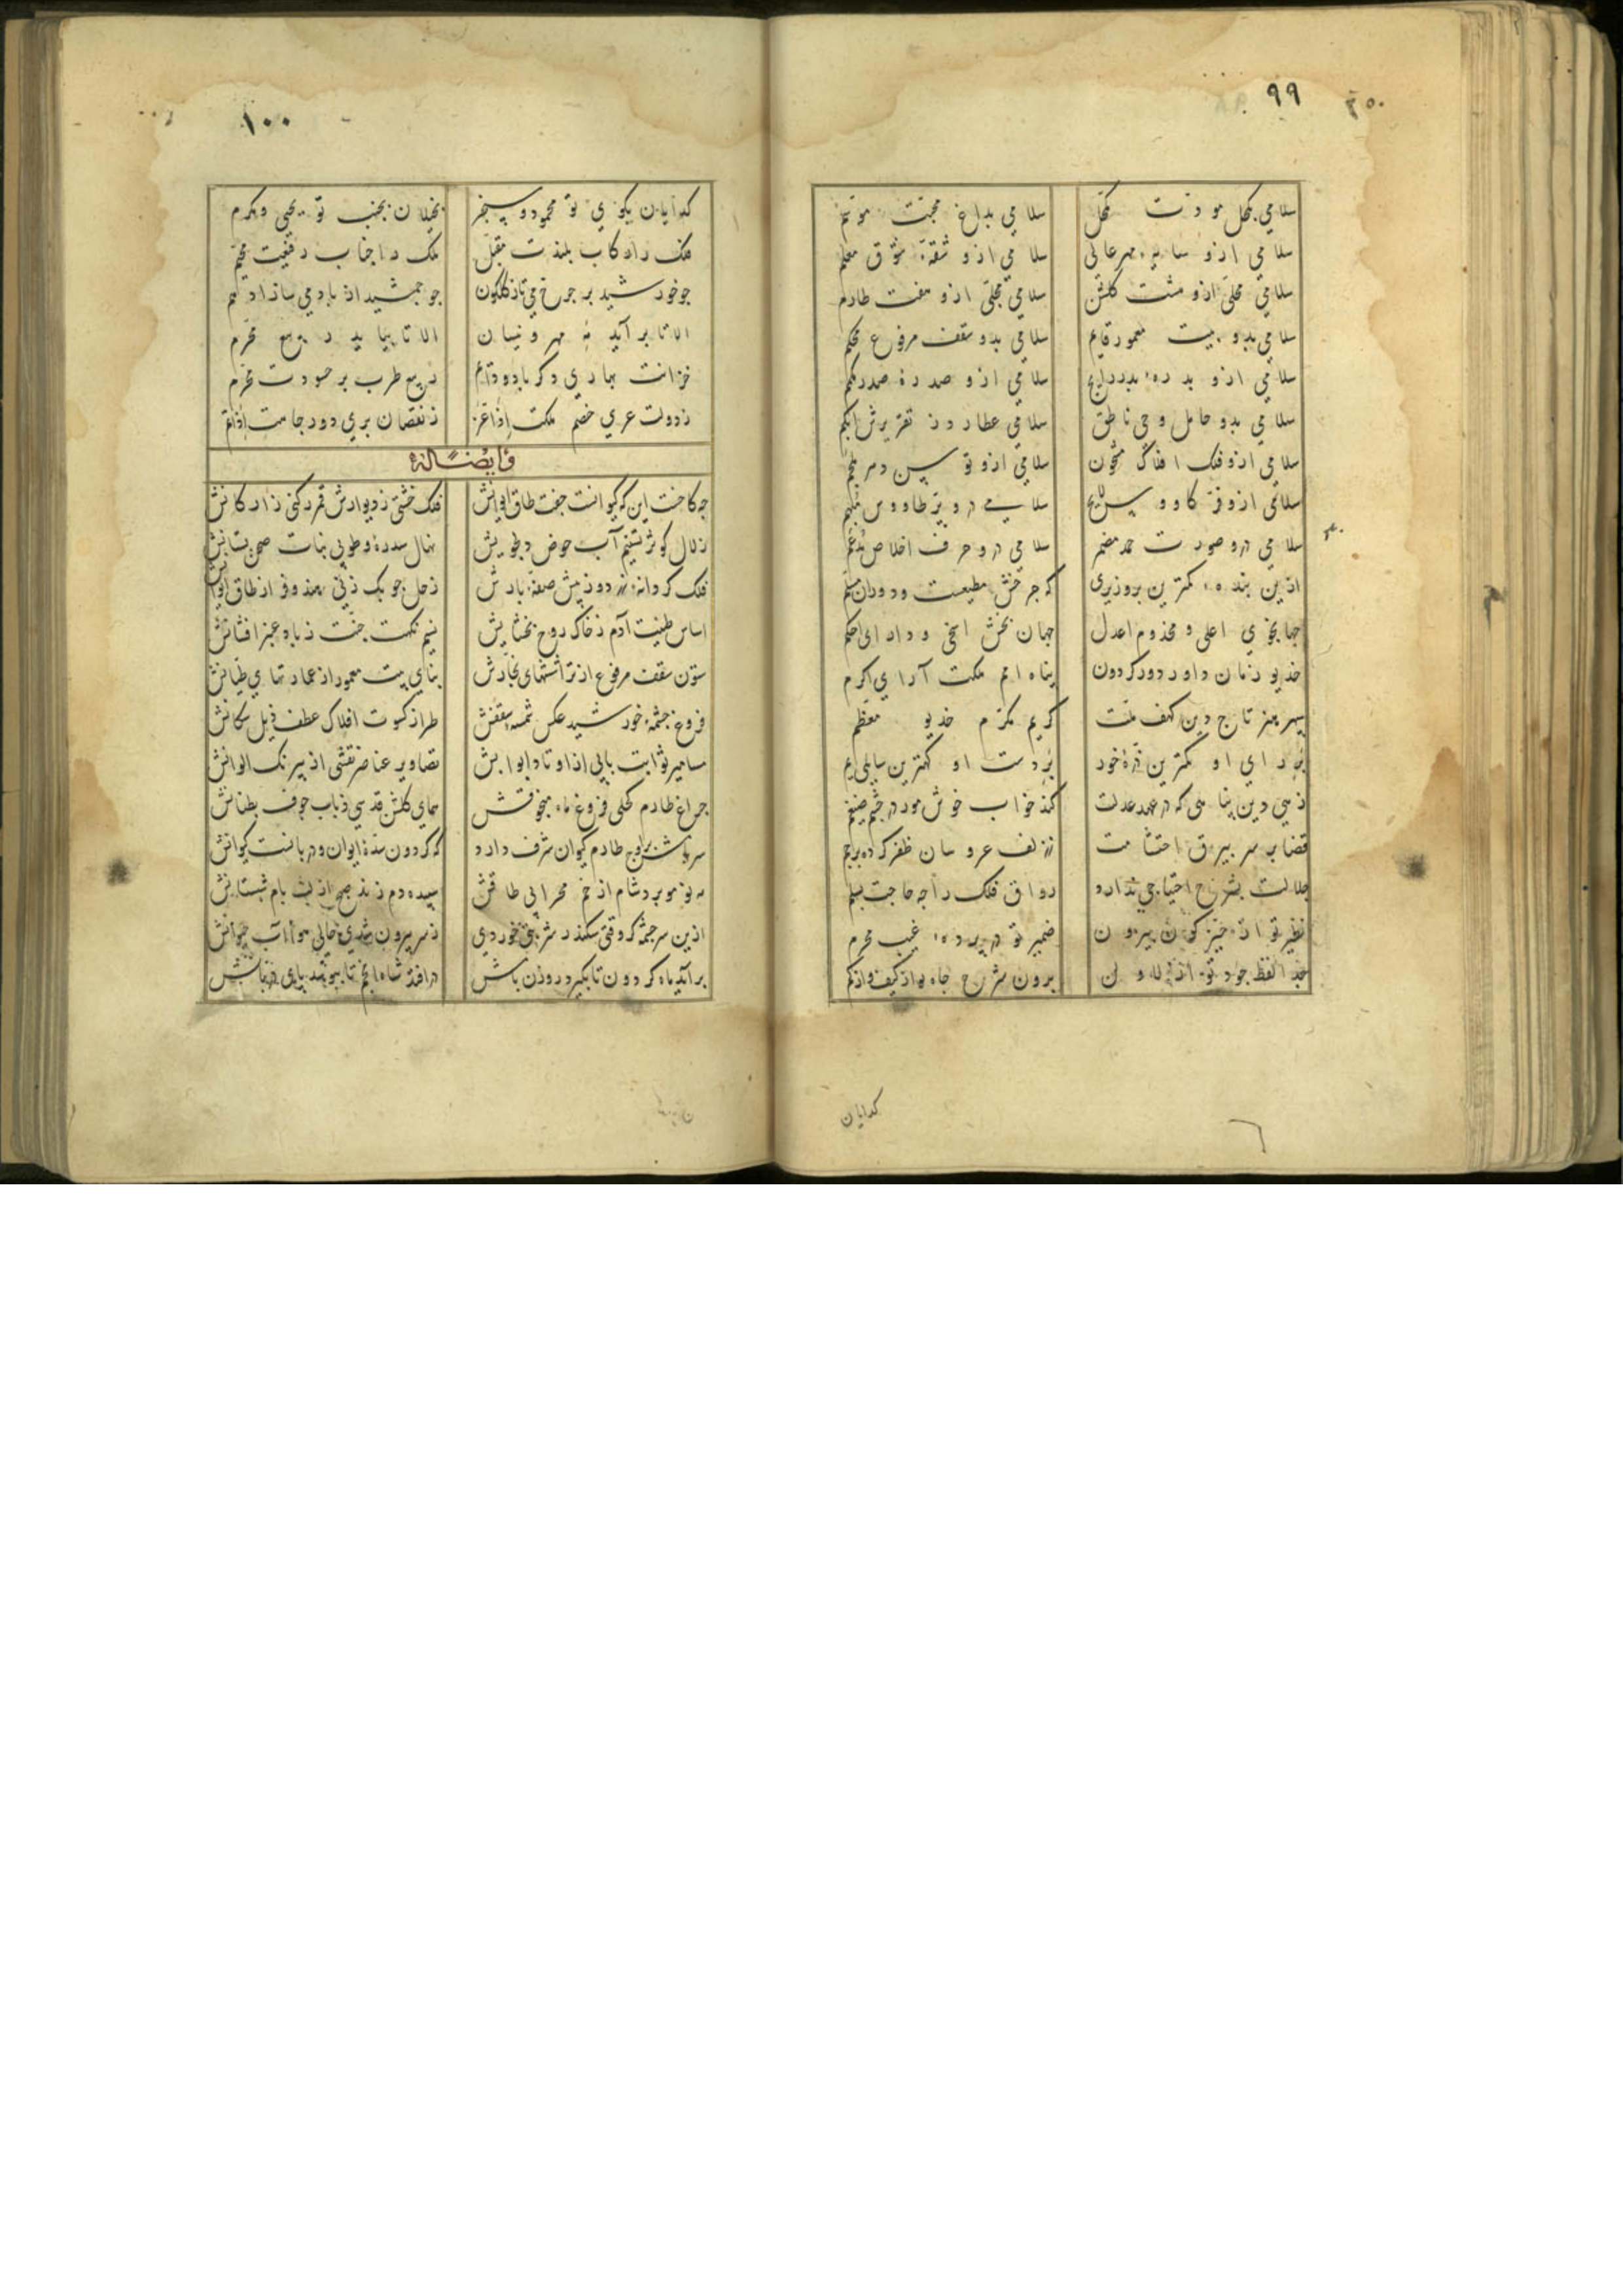 ۹۹
سلامی بکحل مودت مکحل سلامی بداغ محبت موسم
سلامی ازو سایه مهر عالی سلامی ازو شقهٔ شوق معلم
سلامی محلی ازو هشت کلشن سلامی مجلی ازو هفت طارم
سلامی بدو بیت معمور قایم سلامی بدو سقف مرفوع محکم
سلامی ازو بدرهٔ بدر رایج سلامی ازو صدرهٔ صدر
سلامی بدو حامل وحی ناطق سلامی عطارد ز تقریرش ابکم
سلامی ازو فلک افلاک مشحون سلامی ازو
سلامی ازو فر کاووس سلامی درو پر طاووس
سلامی درو صورت حمد مضمر سلامی درو حرف اخلاص مدغم
ازین بنده کمترین بر وزیری که چرخش مطیعست و دوران مسلم
جهانجوی اعلی و مخدوم اعدل جهان بخش اسخی و دارای احکم
خدیو زمان داور دور کردون پناه امم ملکت آرای اکرم
سپهر هنر تاج دین کهف ملت کریم مکرم خدیو معظم
بر رای او کمترین ذره خور بر دست او کمترین سایلی یم
زهی دین پناهی که در عهد عدلت کند خواب خوش مور در چشم ضیغم
قضا بر سر بیرق احتشامت ز زلف عروسان ظفر کرده پرچم
جلالت بشرح احتیاجی ندارد رواق فلک را چه حاجت بسلم
نظیر تو از حیز کون بیرون ضمیر تو در پرده غیب محرم
برون شرح جاه تو از کیف و از کم
کدایان
۱۰۰
کدایان بکوی تو محمود و سنجر بخیلان بجنب تو یحیی و مکرم
فلک را رکاب بلندت مقبل ملک را جناب رفیعت مخیم
چو خورشید بر چرخ می تاز کلکون چو جمشید از باده می ساز
الا تا بر آید مه مهر و نیسان الا تا بیاید ربیع محرم
خزانت بهاری دکر باد و دایم ربیع طرب بر حسودت محرم
ز دولت عری خصم ملکت اذا عز ز نقصان بری دور جاهت اذا تم
و ایضا له
چه کاخست این که کیوانست جفت طاق ایوانش فلک خشتی ز دیوارش قمر رکنی ز ارکانش
زلال کوثر تسنیم آب حوض دلجویش نهال سدره و طوبی نبات صحن بستانش
فلک کردانه دو ز پیش صفهٔ بارش زحل چوبک زنی هندو فراز طاق ایوانش
اساس طینت آدم ز خاک روح بخشایش نسیم نکهت جنت ز باد عنبر افشانش
ستون سقف مرفوع از تراشهای نجارش بنای بیت معمور از عمارتهای طیانش
فروغ چشمهٔ خورشید عکس شمسهٔ سقفش طراز کسوت افلاک عطف ذیل سکانش
مسامیر ثوابت بابی از اوتاد ابوابش تصاویر عناصر نقشی از نیرنک الوانش
چراغ طارم کحلی فروغ ماه منجوقش همای کلشن قدسی ذباب جوف بطنانش
سروش بر اوج طارم کیوان شرف دارد که کردون سدهٔ ایوان و دربانست کیوانش
مه نو مو برد شام از خم محرابی طاقش سپیده دم زند صبح از لب بام شبستانش
ازین سرچشمه کر وقتی سکندر شربتی خوردی ز سر بیرون شدی حالی هوای آب حیوانش
بر آید ماه کردون تا بکیرد روزن بامش در افتد شاه انجم تا ببوسد پای دربانش